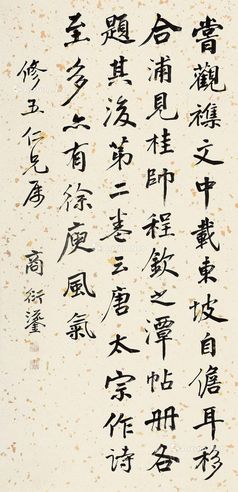 嘗觀襍文中載東坡自儋耳移
合浦見桂帥程欽之潭帖冊各
題其後第二卷云唐太宗作詩
至多亦有徐庾風氣
修五仁兄屬
商衍鎏